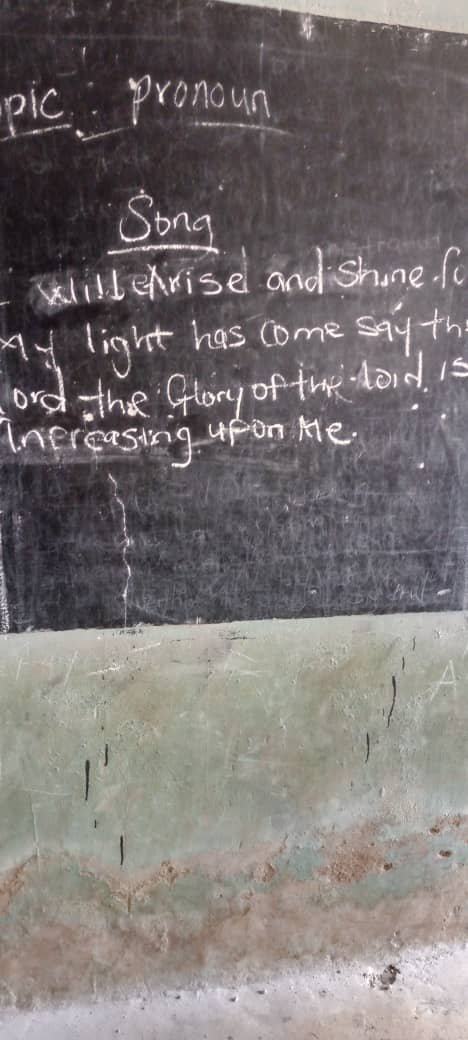 pic: pronoun
Song
will Arise and Shine fo
My light has come say th
Lord the Glory of the Lord is
Increasing upon Me.